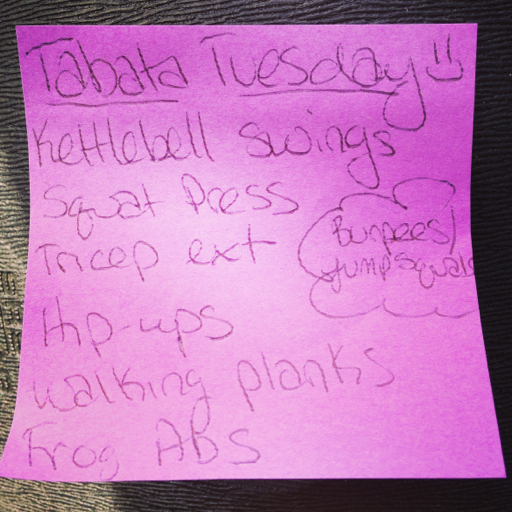 Tabata Tuesday
Kettlebell swings
Squat Press
Tricep ext
Burpees/
Jump squats
Hip-ups
Walking planks
Frog ABS